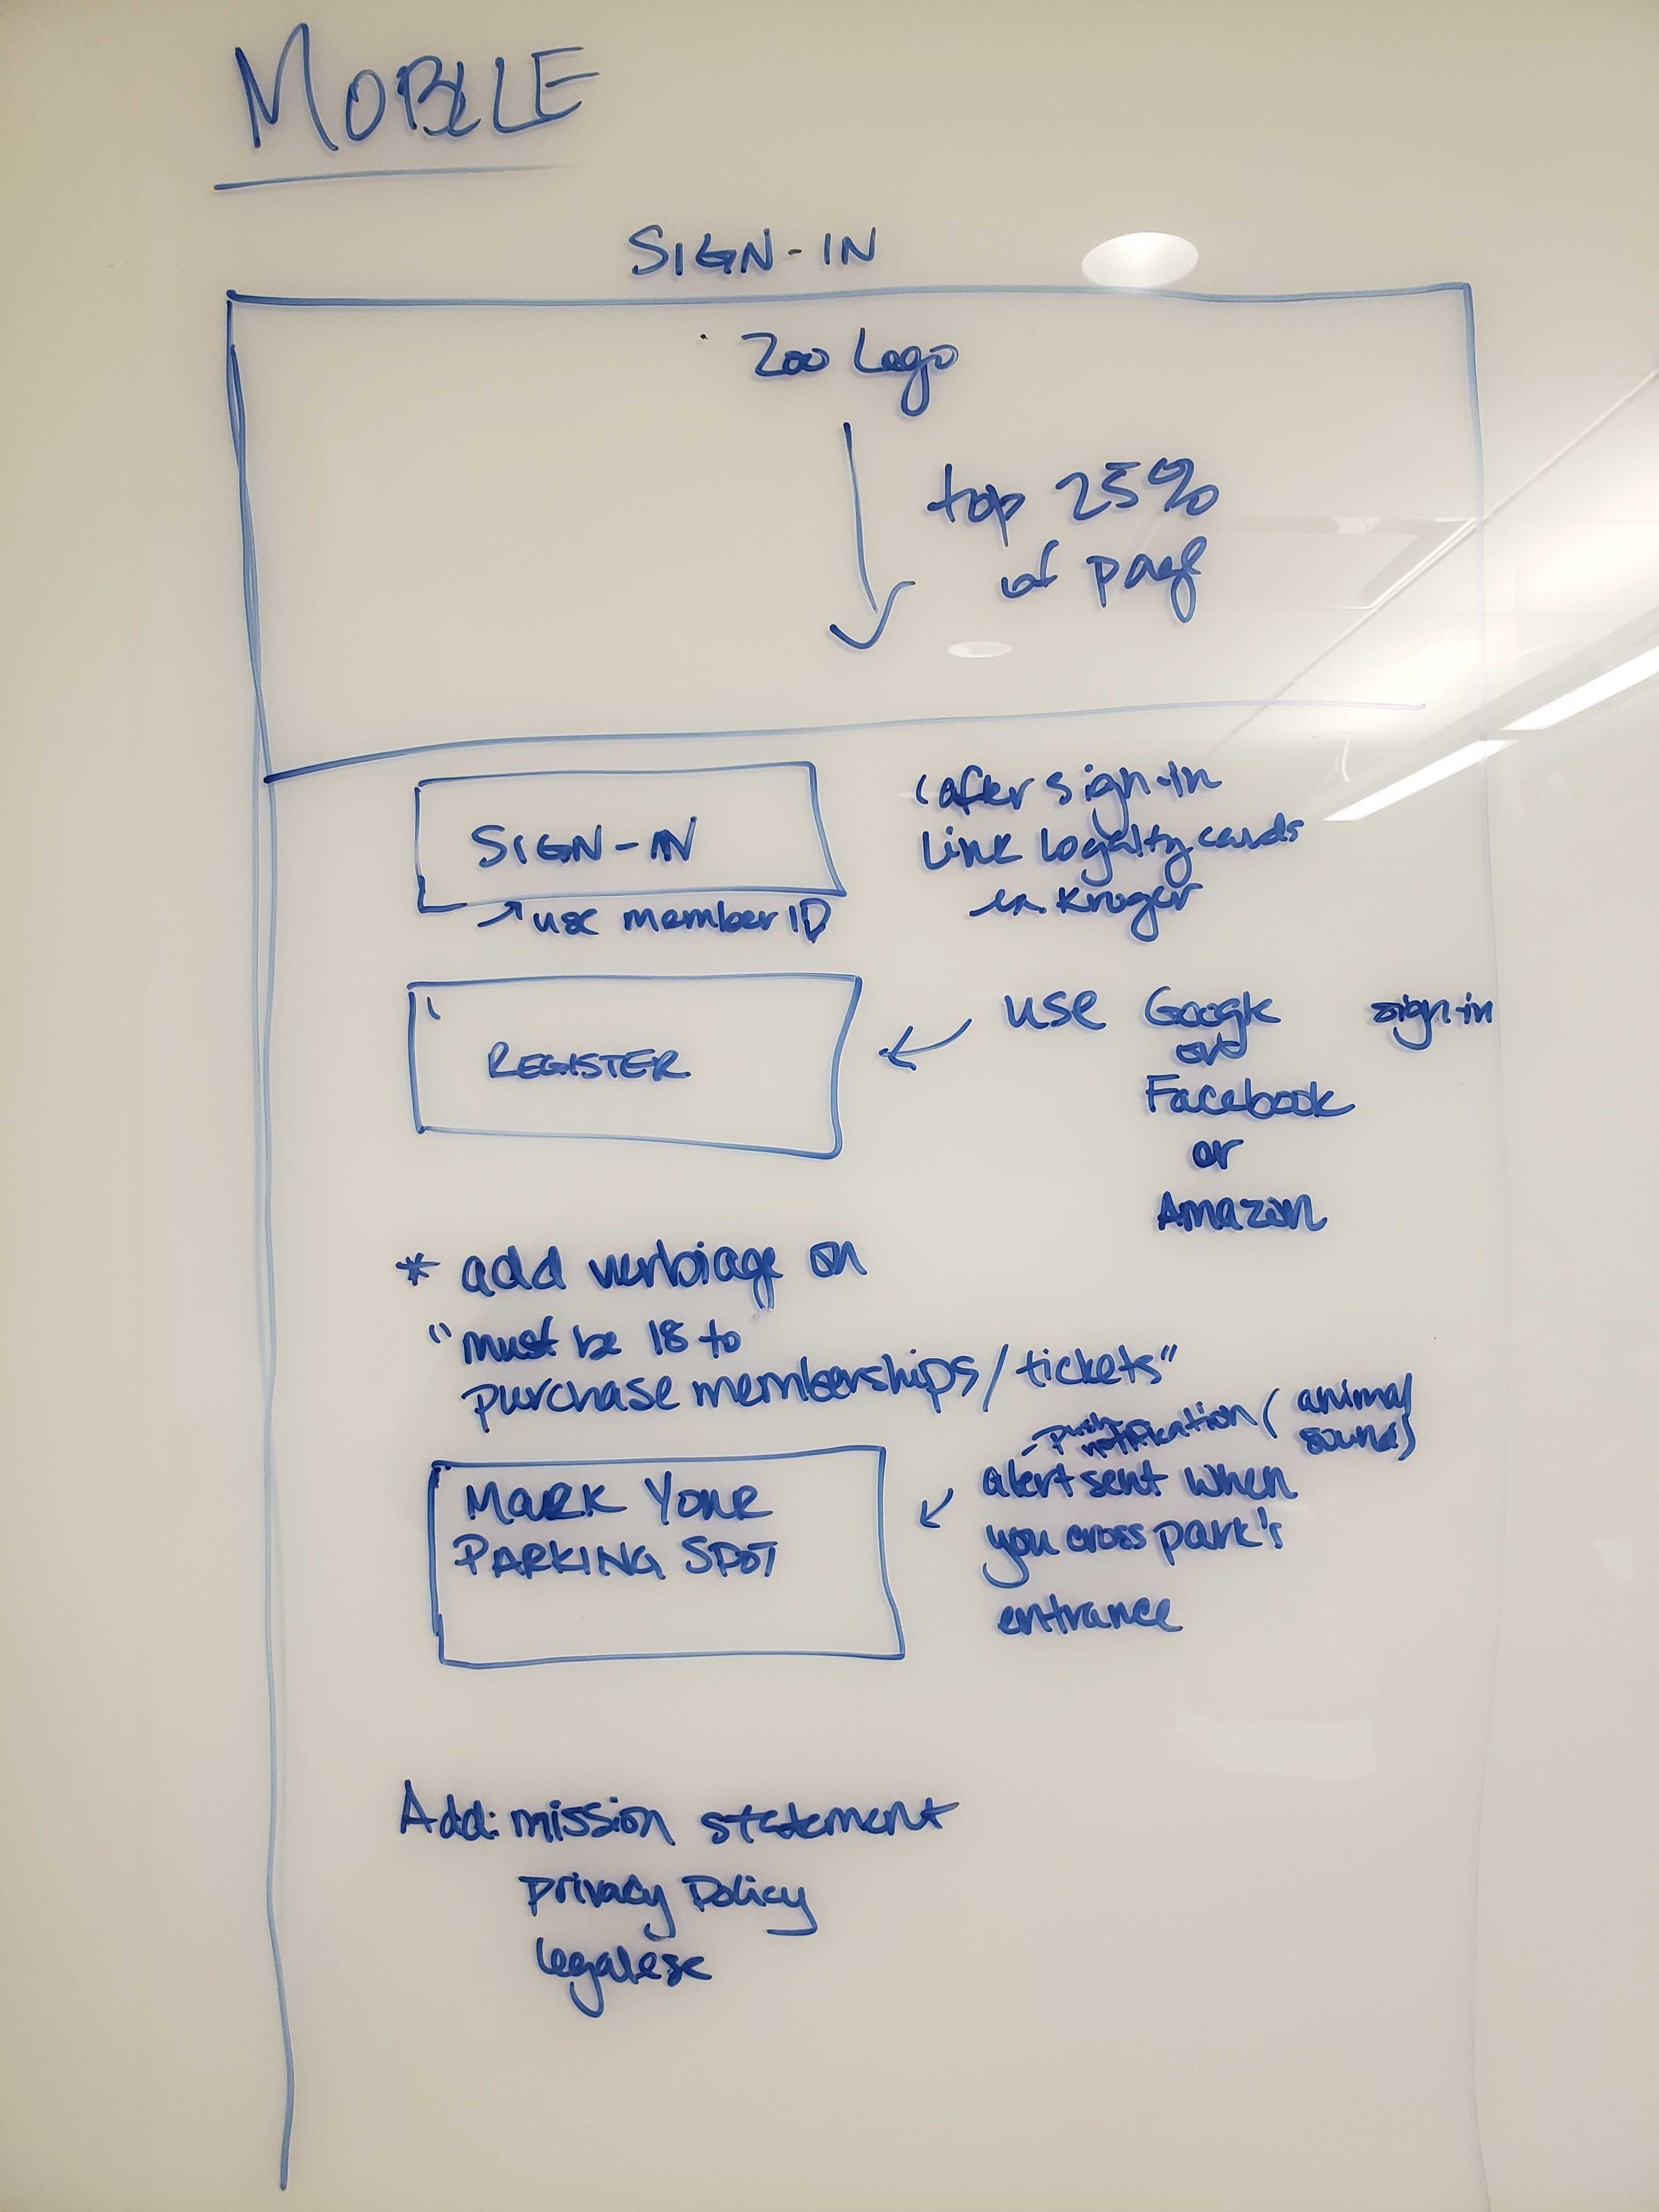 MOBILE
SIGN-IN
Zoo Logo
top 25%
of page
SIGN-IN
use member ID
(after sign-in
Link loyalty cards
ex. Kroger
REGISTER
use Google sign-in
or
Facebook
or
Amazon
* add verbiage on
"must be 18 to
purchase memberships/tickets"
MARK YOUR
PARKING SPOT
- push notification (animal
sound)
alert sent when
you cross park's
entrance
Add: mission statement
privacy Policy
legalese